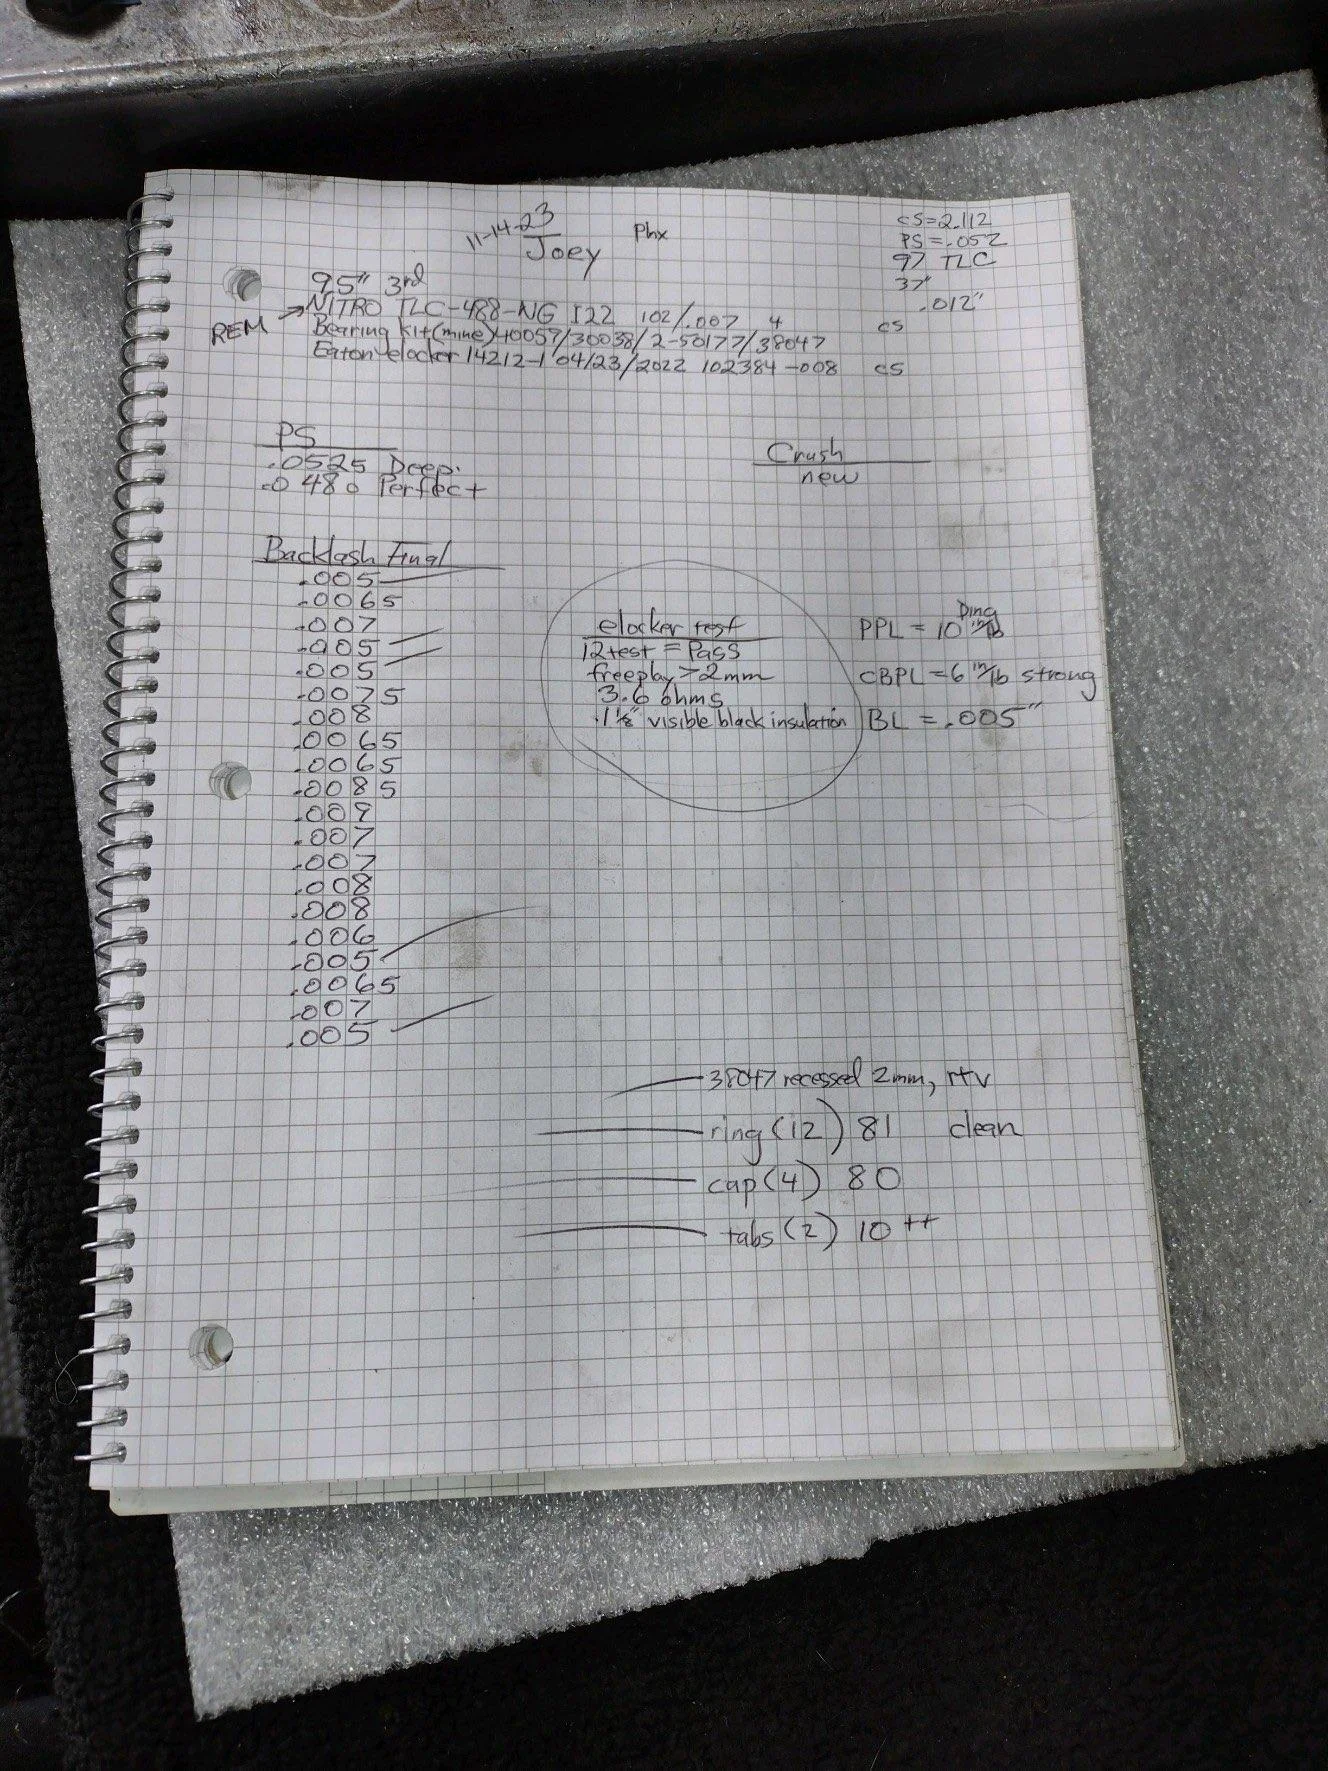 11-14-23
Joey
Phx
CS=2.112
PS=.052
97 TLC
37"
.012"
9.5" 3rd
REM → NITRO TLC-488-NG I22 102/.007 4 CS
Bearing Kit (mine) 40059/30038/2-50177/38047
Eaton elocker 14212-1 04/23/2022 102384-008 CS
PS
.0525 Deep.
.0480 Perfect
Crush
new
Backlash Final
.005
.0065
.007
.005
.005
.0075
.008
.0065
.0065
.0085
.009
.007
.007
.008
.008
.006
.005
.0065
.007
.005
elocker test
12 test = Pass
freeplay >2mm
3.6 ohms
1⅛" visible black insulation
PPL = 10 in/lb Ding
CBPL = 6 in/lb strong
BL = .005"
38047 recessed 2mm, rtv
ring (12) 81 clean
cap (4) 80
tabs (2) 10 ++